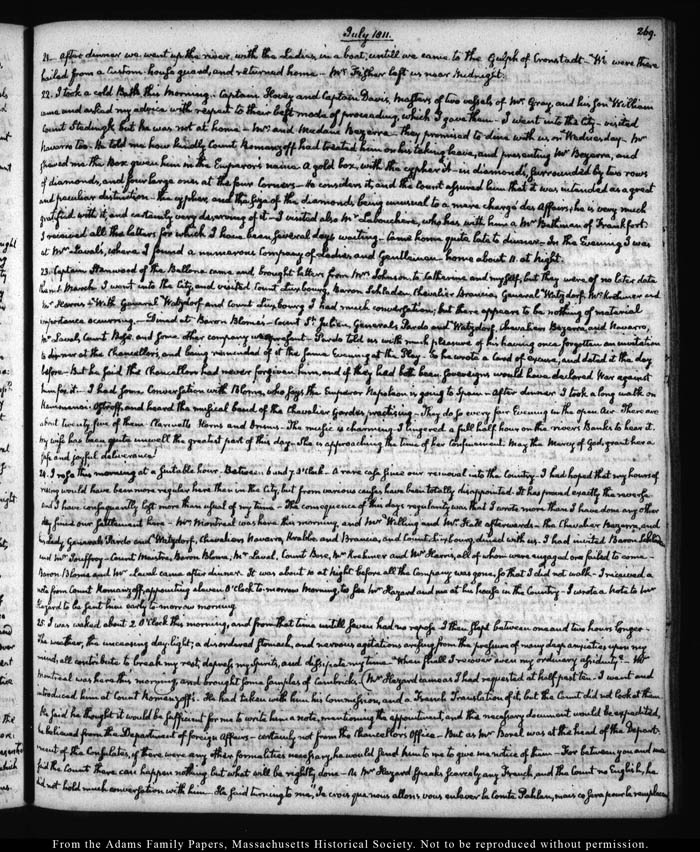 July 1811.
269.
21. After dinner we went up the river, with the Ladies, in a boat, untill we came to the Gulph of Cronstadt - We were there
hailed from a Custom-house guard, and returned home - Mr Fisher left us near Midnight.
22. I took a cold Bath this Morning. Captain Hovey and Captain Davis, masters of two vessels of Mr Gray, and his Son William
came and asked my advice with respect to their best mode of proceeding, which I gave them - I went into the City - visited
Count Stedingk but he was not at home - Mr and Madame Bezerra - they promised to dine with us on Wednesday. Mr
Navarro too. He told me how kindly Count Romanzoff had treated him on his taking leave, and presenting Mr Bezerra, and
shewed me the Box given him in the Emperor's name. A gold box, with the cypher it in diamonds, surrounded by two rows
of diamonds, and four large ones at the four Corners - He considers it, and the Count assured him that it was intended as a great
and peculiar distinction - the cypher, and the size of the diamonds, being unusual to a mere chargé des Affaires; he is very much
gratified with it, and certainly very deserving of it - I visited also Mr Labouchere, who has with him a Mr Bethman of Frankfort.
I received all the letters for which I have been several days waiting - Came home quite late to dinner - In the Evening I was
at Mr Laval's, where I found a numerous Company of Ladies and Gentlemen - home about 11. at Night.
23. Captain Stanwood of the Bellona came and brought letters from Mrs Johnson to Catherine and myself, but they were of no later date
than March. I went into the City, and visited Count Luxbourg, Baron Schladen, Chevalier Brancia, General Watzdorf, Mr Krehmer and
Mr Harris - With General Watzdorf and Count Luxbourg I had much conversation; but there appears to be nothing of material
importance occurring - Dined at Baron Blome's - Count St Julien, Generals Pardo and Watzdorf, Chevaliers Bezerra, and Navarro,
Mr Laval, Count Bose, and some other company were present - Pardo told us with much pleasure of his having once forgotten an invitation
to dinner at the Chancellor's, and being reminded of it the same Evening at the Play - So he wrote a Card of excuse, and dated it the day
before - But he said the Chancellor had never forgiven him, and if they had both been Sovereigns would have declared War against
him for it - I had some Conversation with Blome, who says the Emperor Napoleon is going to Spain - After dinner I took a long walk on
Kammenoi-Ostroff, and heard the musical band of the Chevalier Gardes practising - They do so every fair Evening in the open air. There are
about twenty five of them. Clarinetts Horns and Drums - The music is charming. I lingered a full half hour on the river's Banks to hear it.
My wife has been quite unwell the greatest part of this day - She is approaching the time of her Confinement. May the Mercy of God, grant her a
safe and joyful deliverance!
24. I rose this morning at a suitable hour. Between 6 and 7 O'Clock. A rare case since our removal into the Country. I had hoped that my hours of
rising would have been more regular here than in the City, but from various causes have been totally disappointed. It has proved exactly the reverse
and I have consequently lost more than usual of my time - The consequence of this day's regularity was that I wrote more than I have done any other
day since our settlement here - Mr Montreal was here this morning, and Mr Willing and Mr Hall afterwards - The Chevalier Bezerra, and
his Lady, Generals Pardo and Watzdorf, Chevaliers Navarro, Krabbe and Brancia, and Count Luxbourg, dined with us. I had invited Baron Schladen
and Mr Jouffroy - Count Maistre, Baron Blome, Mr Laval. Count Bose, Mr Krehmer and Mr Harris, all of whom were engaged or failed to come -
Baron Blome and Mr Laval came after dinner. It was about 10 at night before all the Company was gone, so that I did not walk - I received a
note from Count Romanzoff, appointing eleven O'Clock to-morrow Morning, to see Mr Hazard and me at his house in the Country - I wrote a Note to Mr
Hazard to be sent him early to-morrow morning.
25. I was waked about 2 O'Clock this morning, and from that time untill seven had no repose. I then slept between one and two hours longer -
The weather, the unceasing day-light; a disordered stomach, and nervous agitations arising from the pressure of many days anxieties upon my
mind, all contribute to break my rest, depress my spirits, and dissipate my time - When shall I recover even my ordinary assiduity? - Mr
Montreal was here this morning, and brought some samples of Cambricks. Mr Hazard came as I had requested at half past ten. I went and
introduced him at Count Romanzoff's. He had taken with him his Commission, and a French Translation of it; but the Count did not look at them.
He said he thought it would be sufficient for me to write him a note, mentioning the appointment, and the necessary document would be expedited,
he believed from the Department of foreign affairs - certainly not from the Chancellor's Office - But as Mr Borel was at the head of the Depart-
ment of the Consulates, if there were any other formalities necessary, he would send him to me to give me notice of them - For between you and me
said the Count there can happen nothing but what will be rightly done - As Mr Hazard speaks scarcely any French, and the Count no English, he
did not hold much conversation with him - He said turning to me, "Je crois que nous allons vous enlever le Comte Pahlen, mais ce sera pour le remplacer
From the Adams Family Papers, Massachusetts Historical Society. Not to be reproduced without permission.